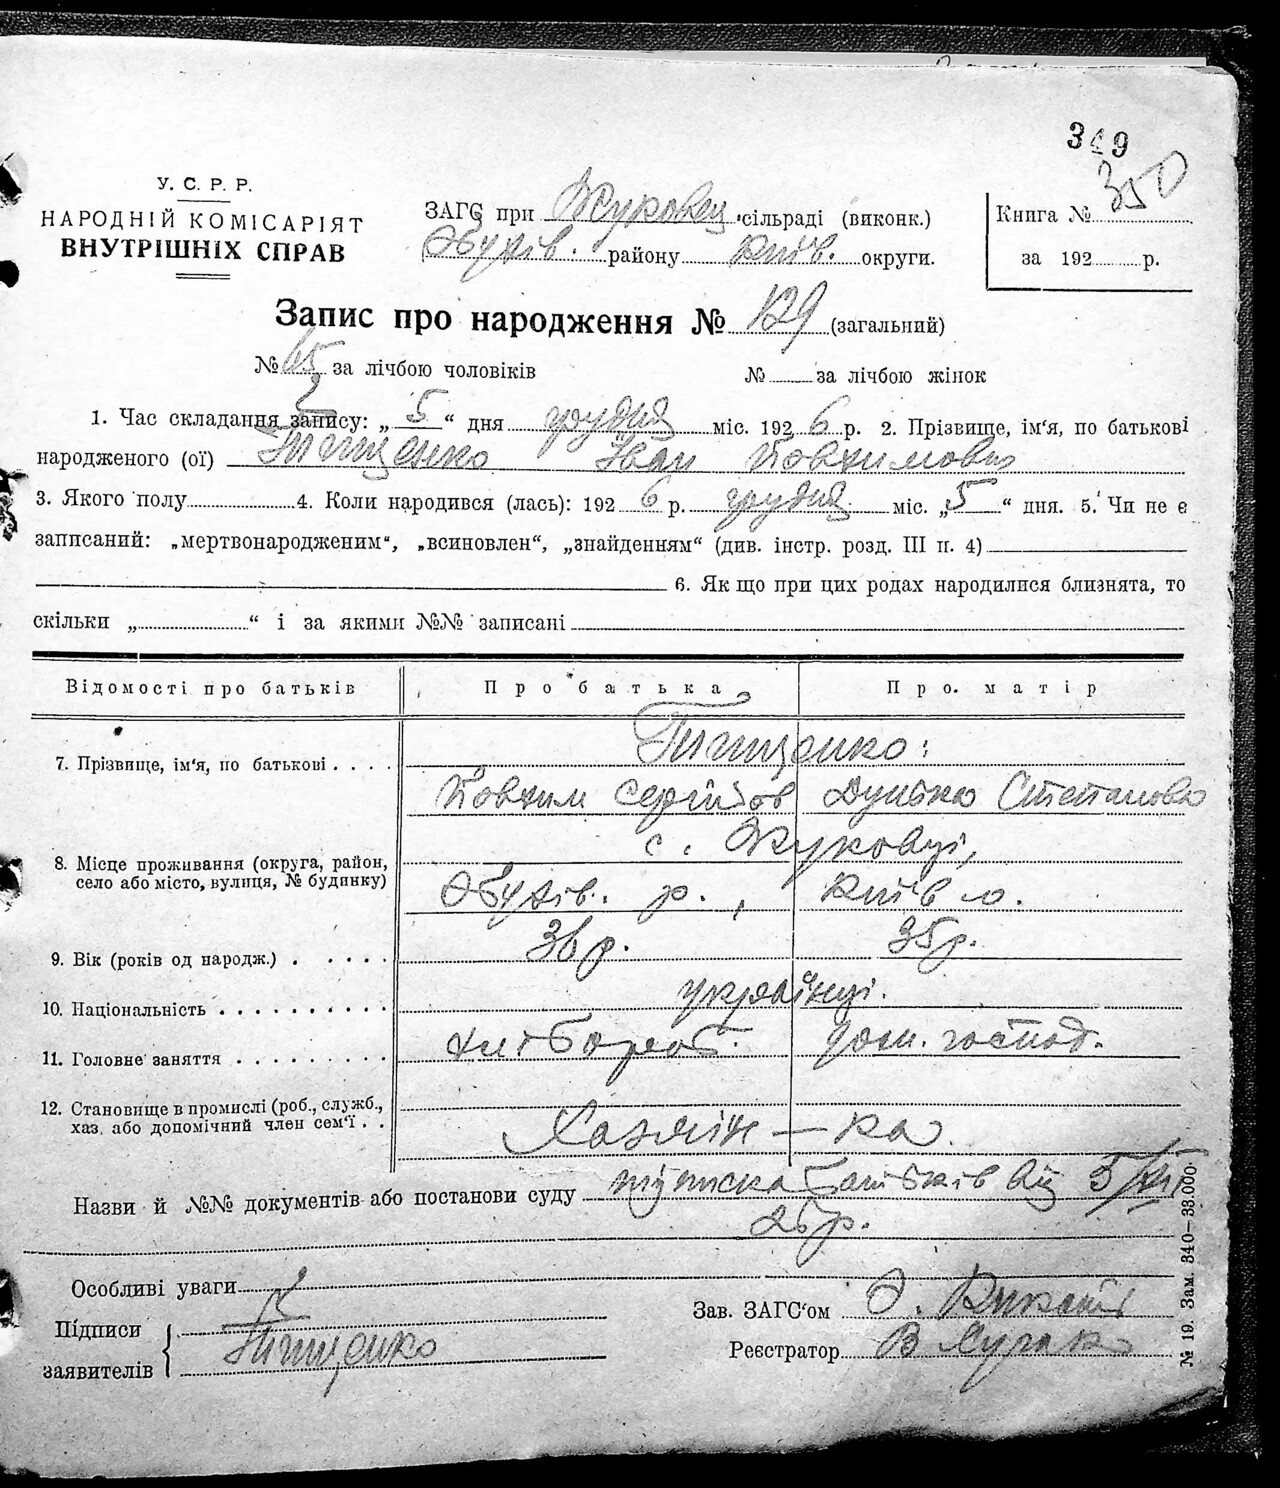 349
350
У. С. Р. Р.
НАРОДНІЙ КОМІСАРІЯТ
ВНУТРІШНІХ СПРАВ
ЗАГС при Жуковец. сільраді (виконк.)
Обухів. району Київ. округи.
Книга №
за 192 р.
Запис про народження № 129 (загальний)
№ 65 за лічбою чоловіків № за лічбою жінок
1. Час складання запису: „ 5 “ дня грудня міс. 192 6 р. 2. Прізвище, ім'я, по батькові
народженого (ої) Тищенко Іван Йовхимович
3. Якого полу 4. Коли народився (лась): 192 6 р. грудня міс. „ 5 “ дня. 5. Чи не є
записаний: „мертвонародженим“, „всиновлен“, „знайденням“ (див. інстр. розд. III п. 4)
6. Як що при цих родах народилися близнята, то
скільки „ “ і за якими №№ записані
Відомості про батьків Про батька Про матір
7. Прізвище, ім'я, по батькові Тищенко:
Йовхим Сергійов Дунька Степановa
с. Жуковці,
8. Місце проживання (округа, район,
село або місто, вулиця, № будинку) Обухів. р., Київ о.
9. Вік (років од народж.) 36 р. 35 р.
10. Національність українці.
11. Головне заняття хлібороб. дом. господ.
12. Становище в промислі (роб., служб.,
хаз. або допомічний член сем'ї Хазяїн — ка
Назви й №№ документів або постанови суду підписка батьків від 5/XII
26 р.
Особливі уваги
Підписи
заявителів Тищенко
Зав. ЗАГС'ом
Реєстратор В
№ 19. Зам. 340—33.000